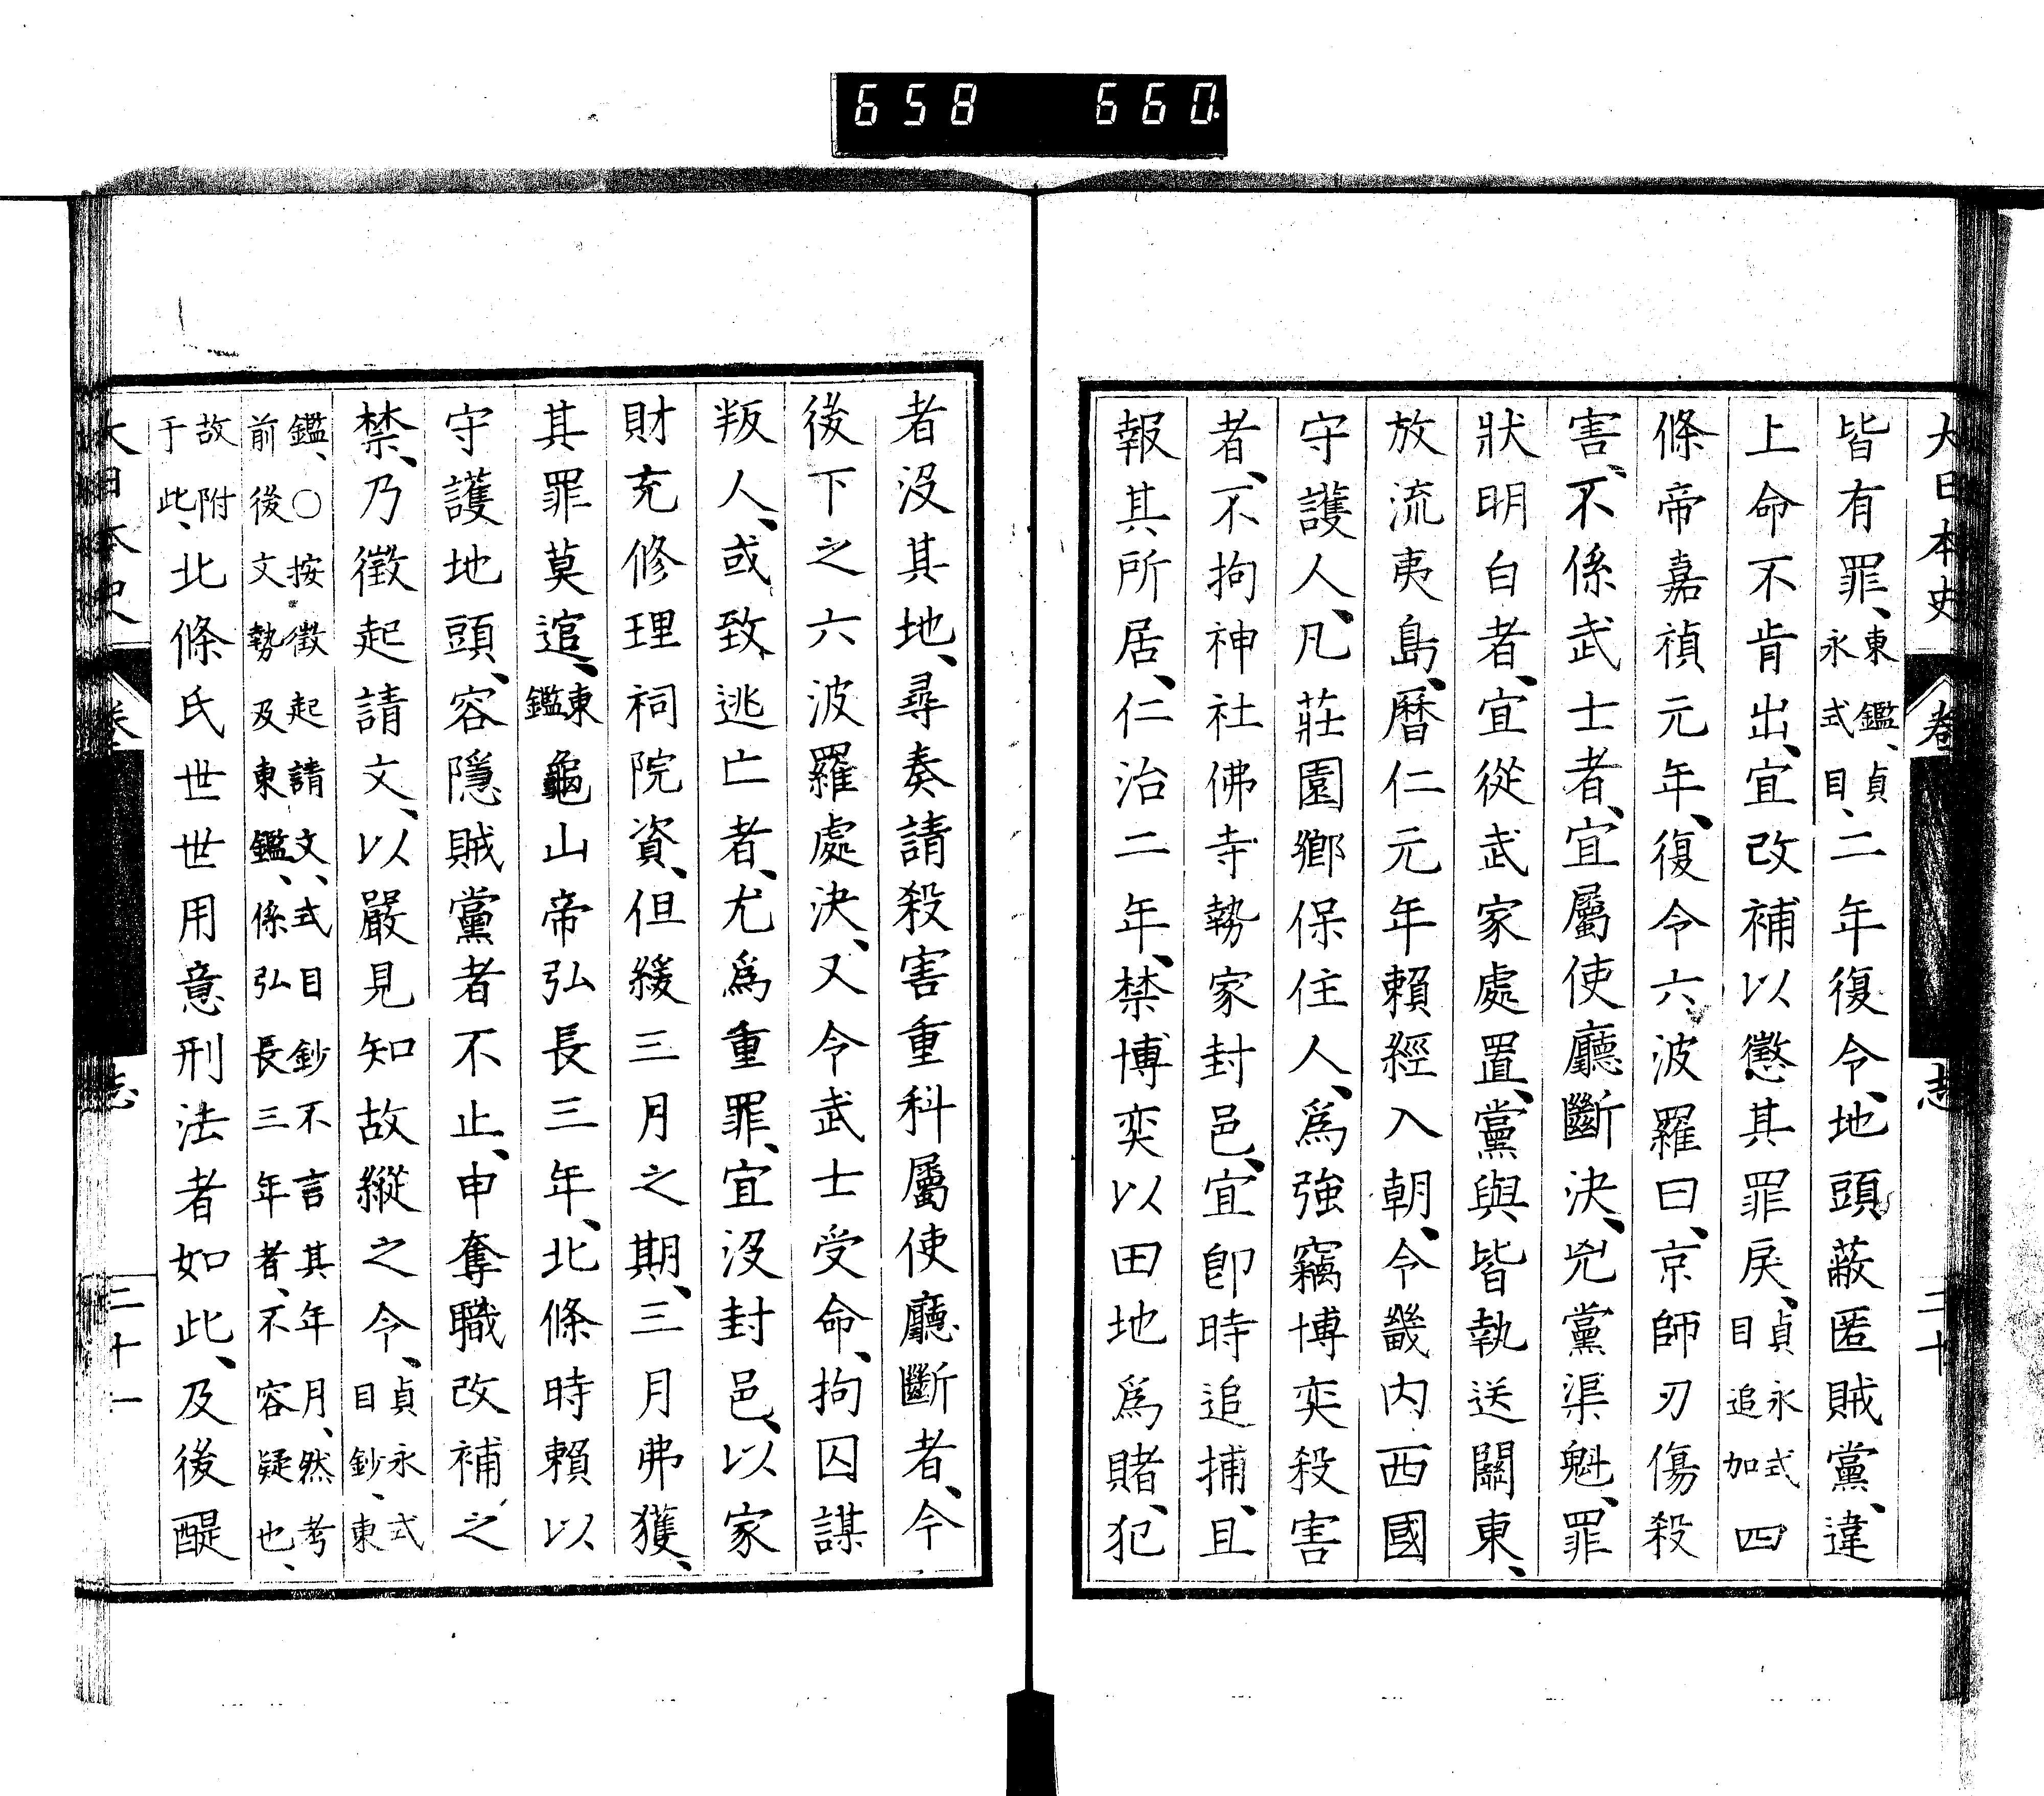 658 660.
大日本史 卷 志 二十
皆有罪、東鑑、貞永式目、二年復令、地頭蔽匿賊黨、違
上命不肯出、宜改補以懲其罪戾、貞永式目追加四
條帝嘉禎元年、復令六波羅曰、京師刃傷殺
害、不係武士者、宜屬使廳斷決、兇黨渠魁、罪
狀明白者、宜從武家處置、黨與皆執送關東、
放流夷島、曆仁元年賴經入朝、令畿內西國
守護人、凡莊園鄉保住人、爲強竊博奕殺害
者、不拘神社佛寺勢家封邑、宜卽時追捕、且
報其所居、仁治二年、禁博奕以田地爲賭、犯
者沒其地、尋奏請殺害重科屬使廳斷者、今
後下之六波羅處決、又令武士受命、拘囚謀
叛人、或致逃亡者、尤爲重罪、宜沒封邑、以家
財充修理祠院資、但緩三月之期、三月弗獲、
其罪莫逭、東鑑龜山帝弘長三年、北條時賴以
守護地頭、容隱賊黨者不止、申奪職改補之
禁、乃徵起請文、以嚴見知故縱之令、貞永式目鈔、東
鑑、○按徵起請文、式目鈔不言其年月、然考前後文勢及東鑑、係弘長三年者、不容疑也、
故附于此、北條氏世世用意刑法者如此、及後醍
大日本史 卷 志 二十一